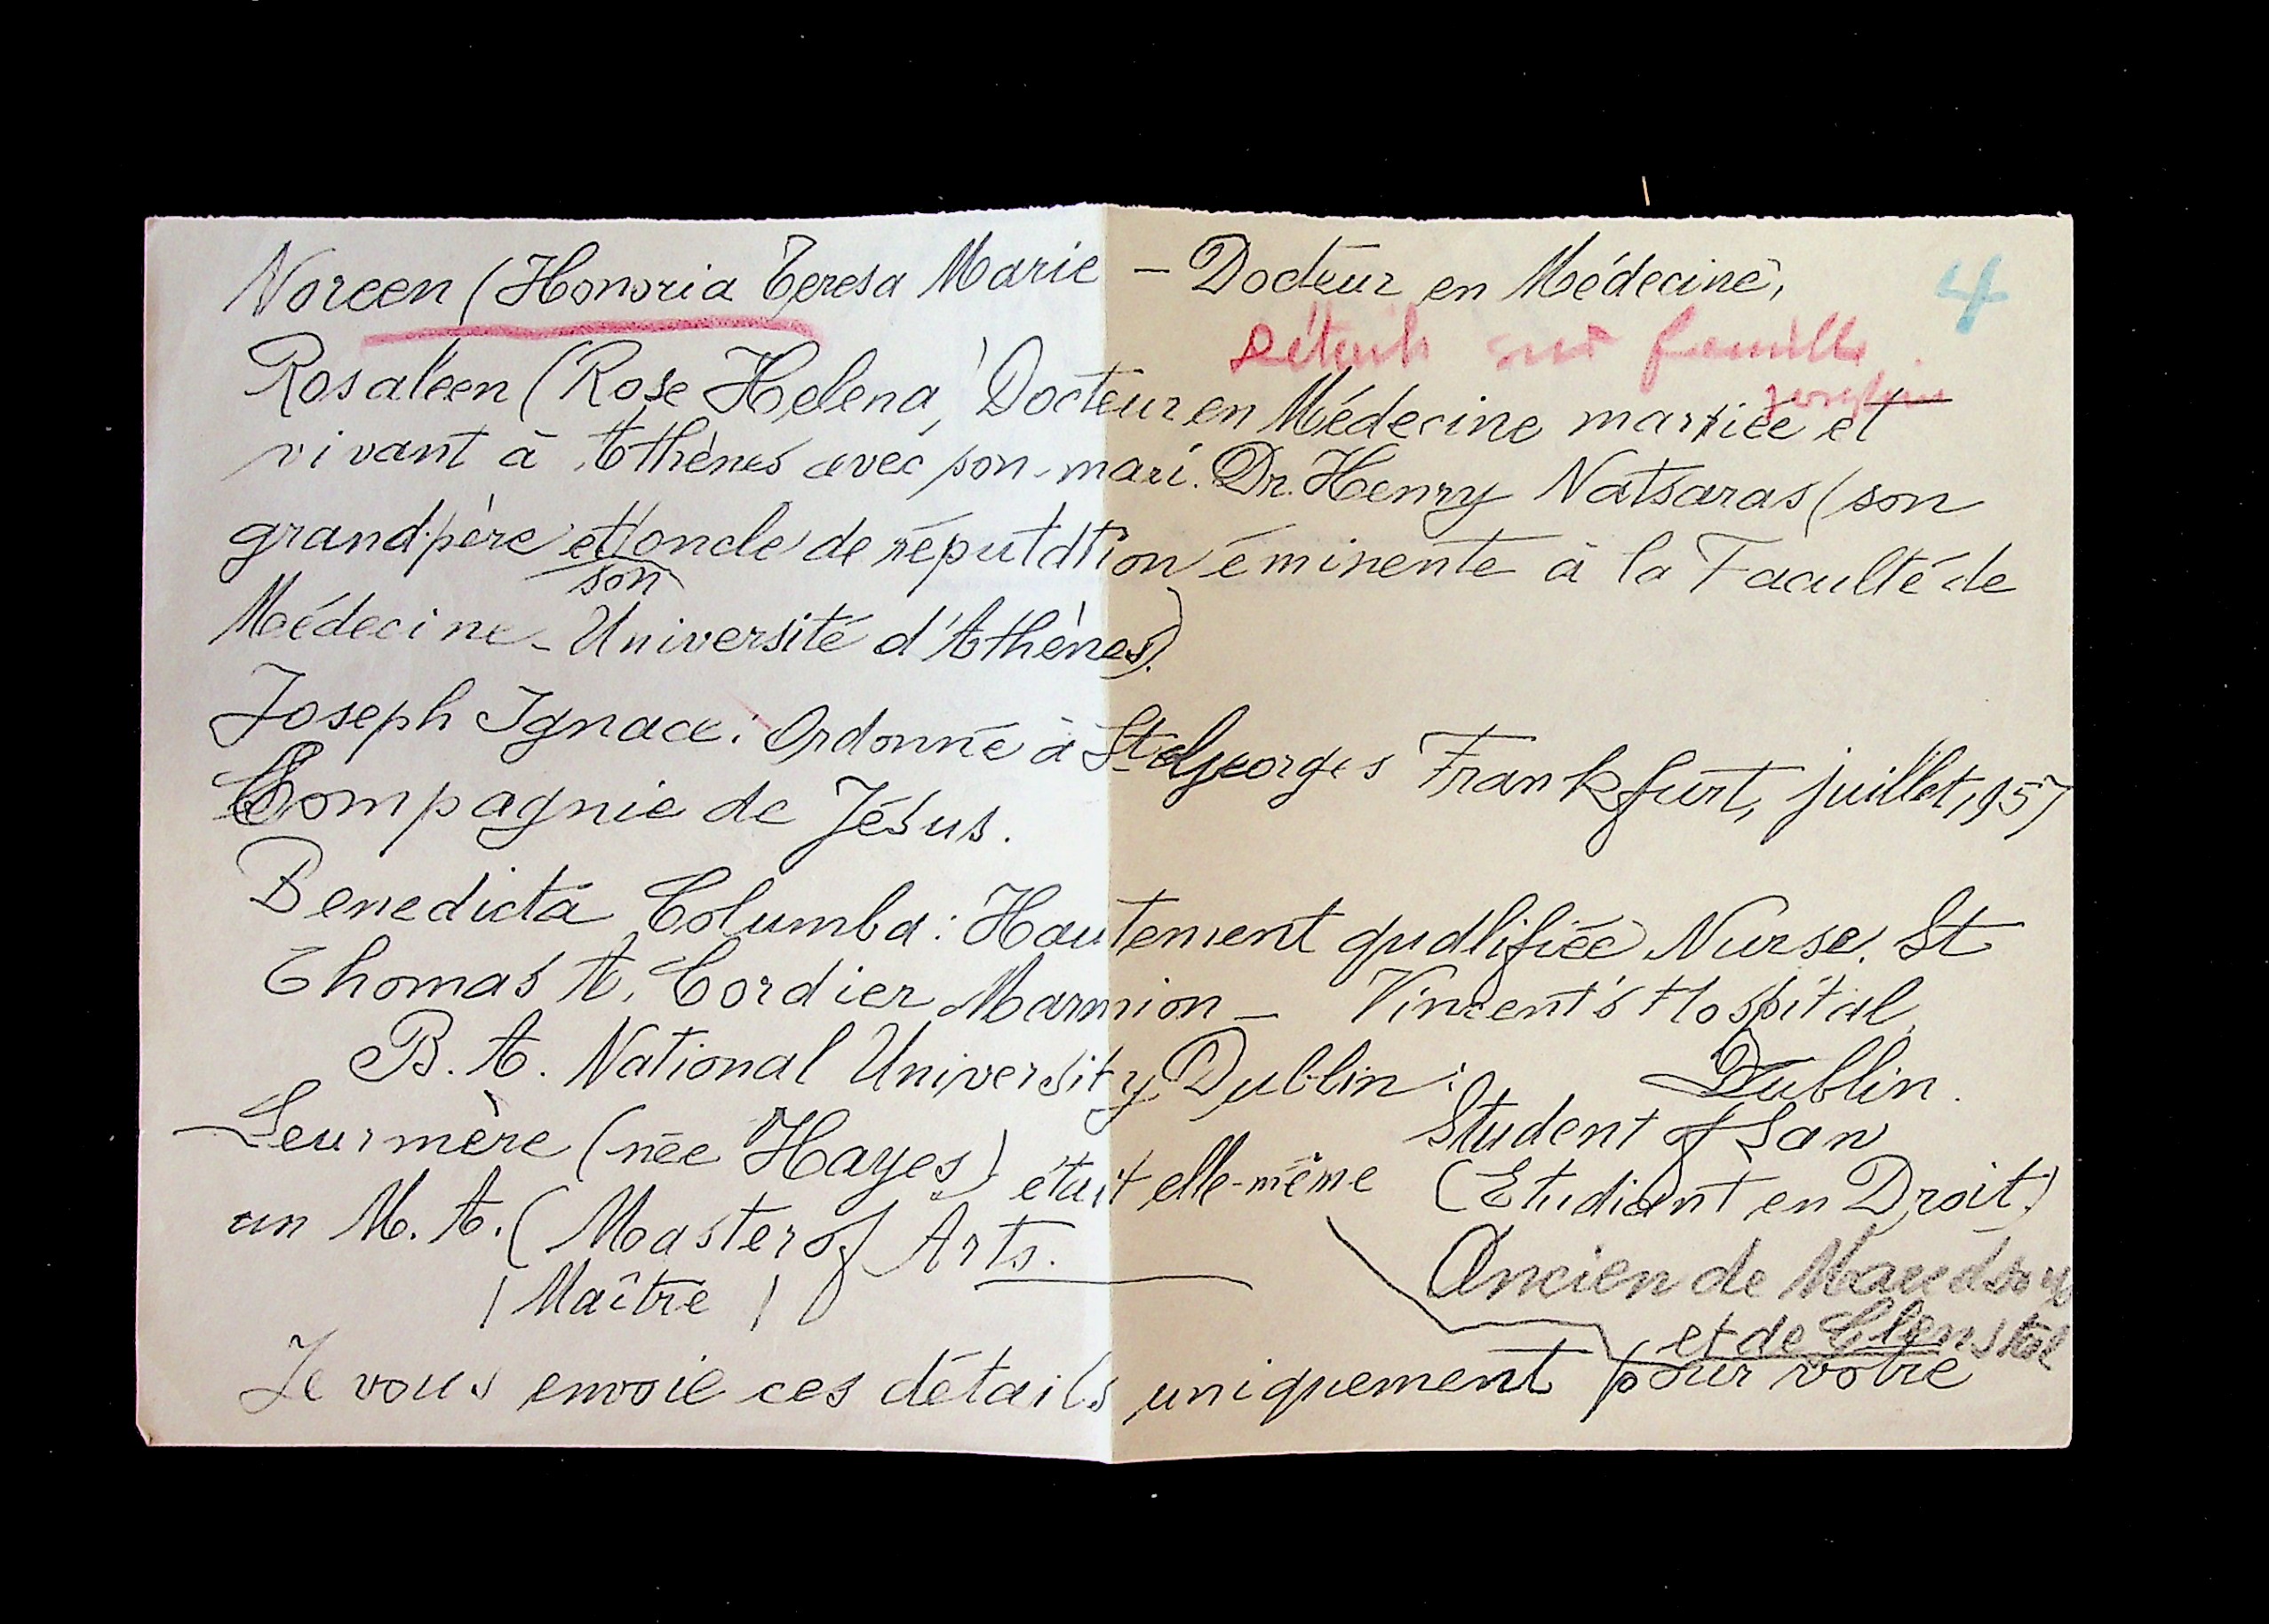 Noreen (Honoria Teresa Marie – Docteur en Médecine,
4
Détails sur famille
Rosaleen (Rose Helena, Docteur en Médecine mariée et
vivant à Athènes avec son mari. Dr. Henry Natsaras (son
grand-père et oncle de réputation éminente à la Faculté de
son
Médecine – Université d'Athènes).
Joseph Ignace: Ordonné à St Georges Frankfurt, juillet, 157
Compagnie de Jésus.
Benedicta Columba: Hautement qualifiée Nurse. St
Vincent's Hospital,
Dublin.
Thomas A. Cordier Marmion –
B.A. National University Dublin:
Student of Law
(Etudiant en Droit)
Ancien de
et de Glenstal
Leur mère (née Hayes) était elle-même
un M.A. (Master of Arts.
(Maître)
Je vous envoie ces détails uniquement pour votre